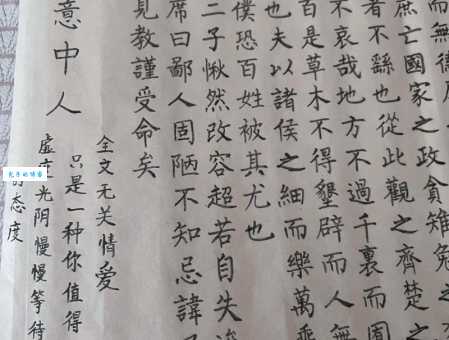 而無德
庶亡國家之政貪雉兔之
者不繇也從此觀之齊楚之
不哀哉地方不過千裏而囿
百是草木不得墾辟而人無
也夫以諸侯之細而樂萬乘
僕恐百姓被其尤也
二子愀然改容超若自失逡
席曰鄙人固陋不知忌諱
見教謹受命矣
意中人
全文无关情爱
只是一种你值得
虚度光阴慢慢等待
的态度